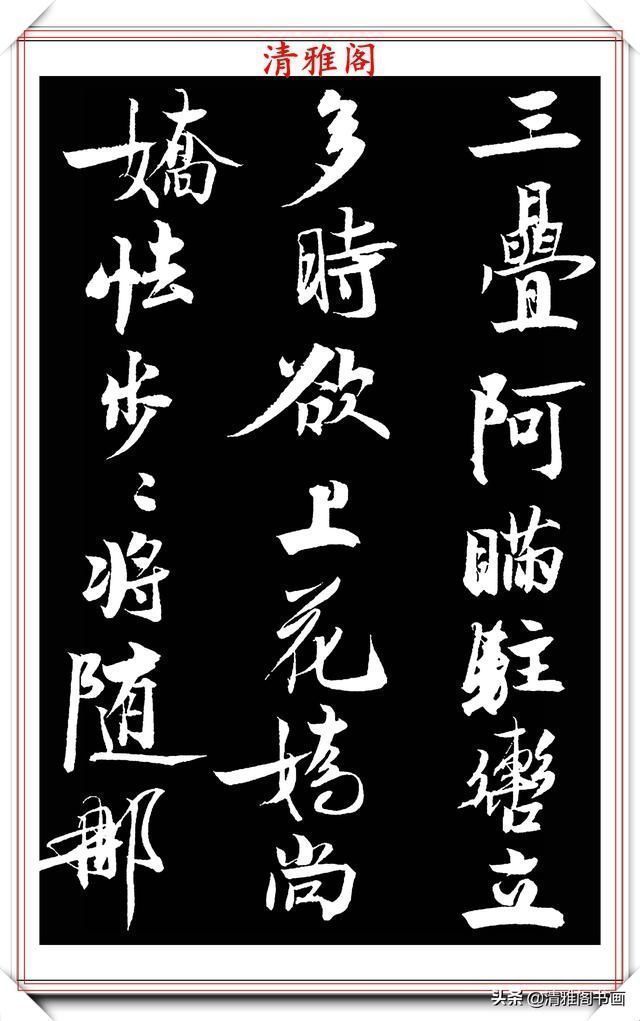 清雅阁
三疊阿瞞駐轡立
多時欲上花嬌尚
嬌怯步々将随那
头条 @清雅阁书画